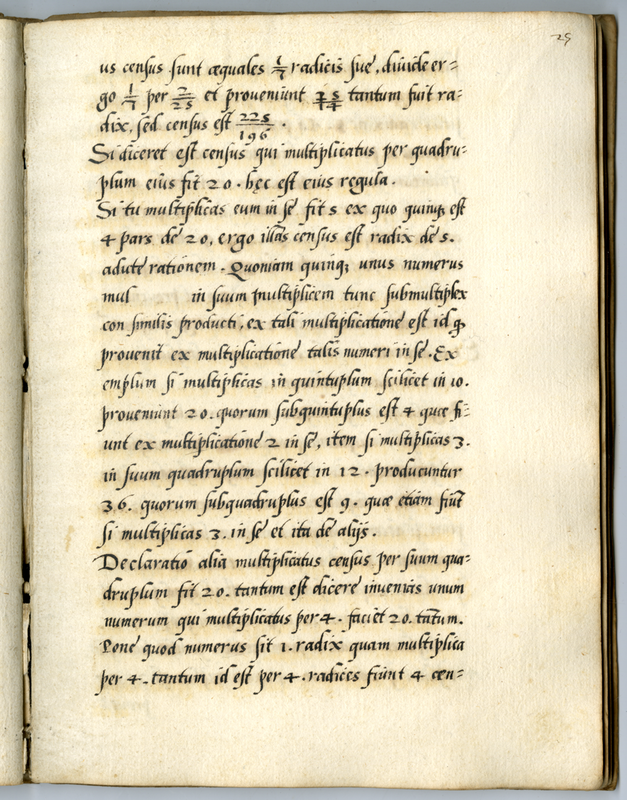 25
us census sunt æquales 1/7 radicis sue, diuide er=
go 1/7 per 2/25 et proueniunt tantum fuit ra-
dix, sed census est 225/196 .
Si diceret est census qui multiplicatus per quadru-
plum eius fit 20 . hęc est eius regula .
Si tu multiplicas eum in se fit 5 ex quo quinqȝ est
4 pars de 20, ergo illas census est radix de 5 .
adute rationem . Quoniam quinqȝ unus numerus
mul in suum multiplicem tunc submultiplex
con similis producti, ex tali multiplicatione est id qȝ
prouenit ex multiplicatione talis numeri in se . Ex
emplum si multiplicas in quintuplum scilicet in 10 .
proueniunt 20 . quorum subquintuplus est 4 quæ fi-
unt ex multiplicatione 2 in se, item si multiplicas 3 .
in suum quadruplum scilicet in 12 . producuntur
36 . quorum subquadruplus est 9 . quæ etiam fiūt
si multiplicas 3 . in se et ita de alijs .
Declaratio alia multiplicatus census per suum qua=
druplum fit 20 . tantum est dicere inuenias unum
numerum qui multiplicatus per 4 . faciet 20 . tātum .
Pone quod numerus sit 1 . radix quam multiplica
per 4 . tantum id est per 4 . radices fiunt 4 cen=